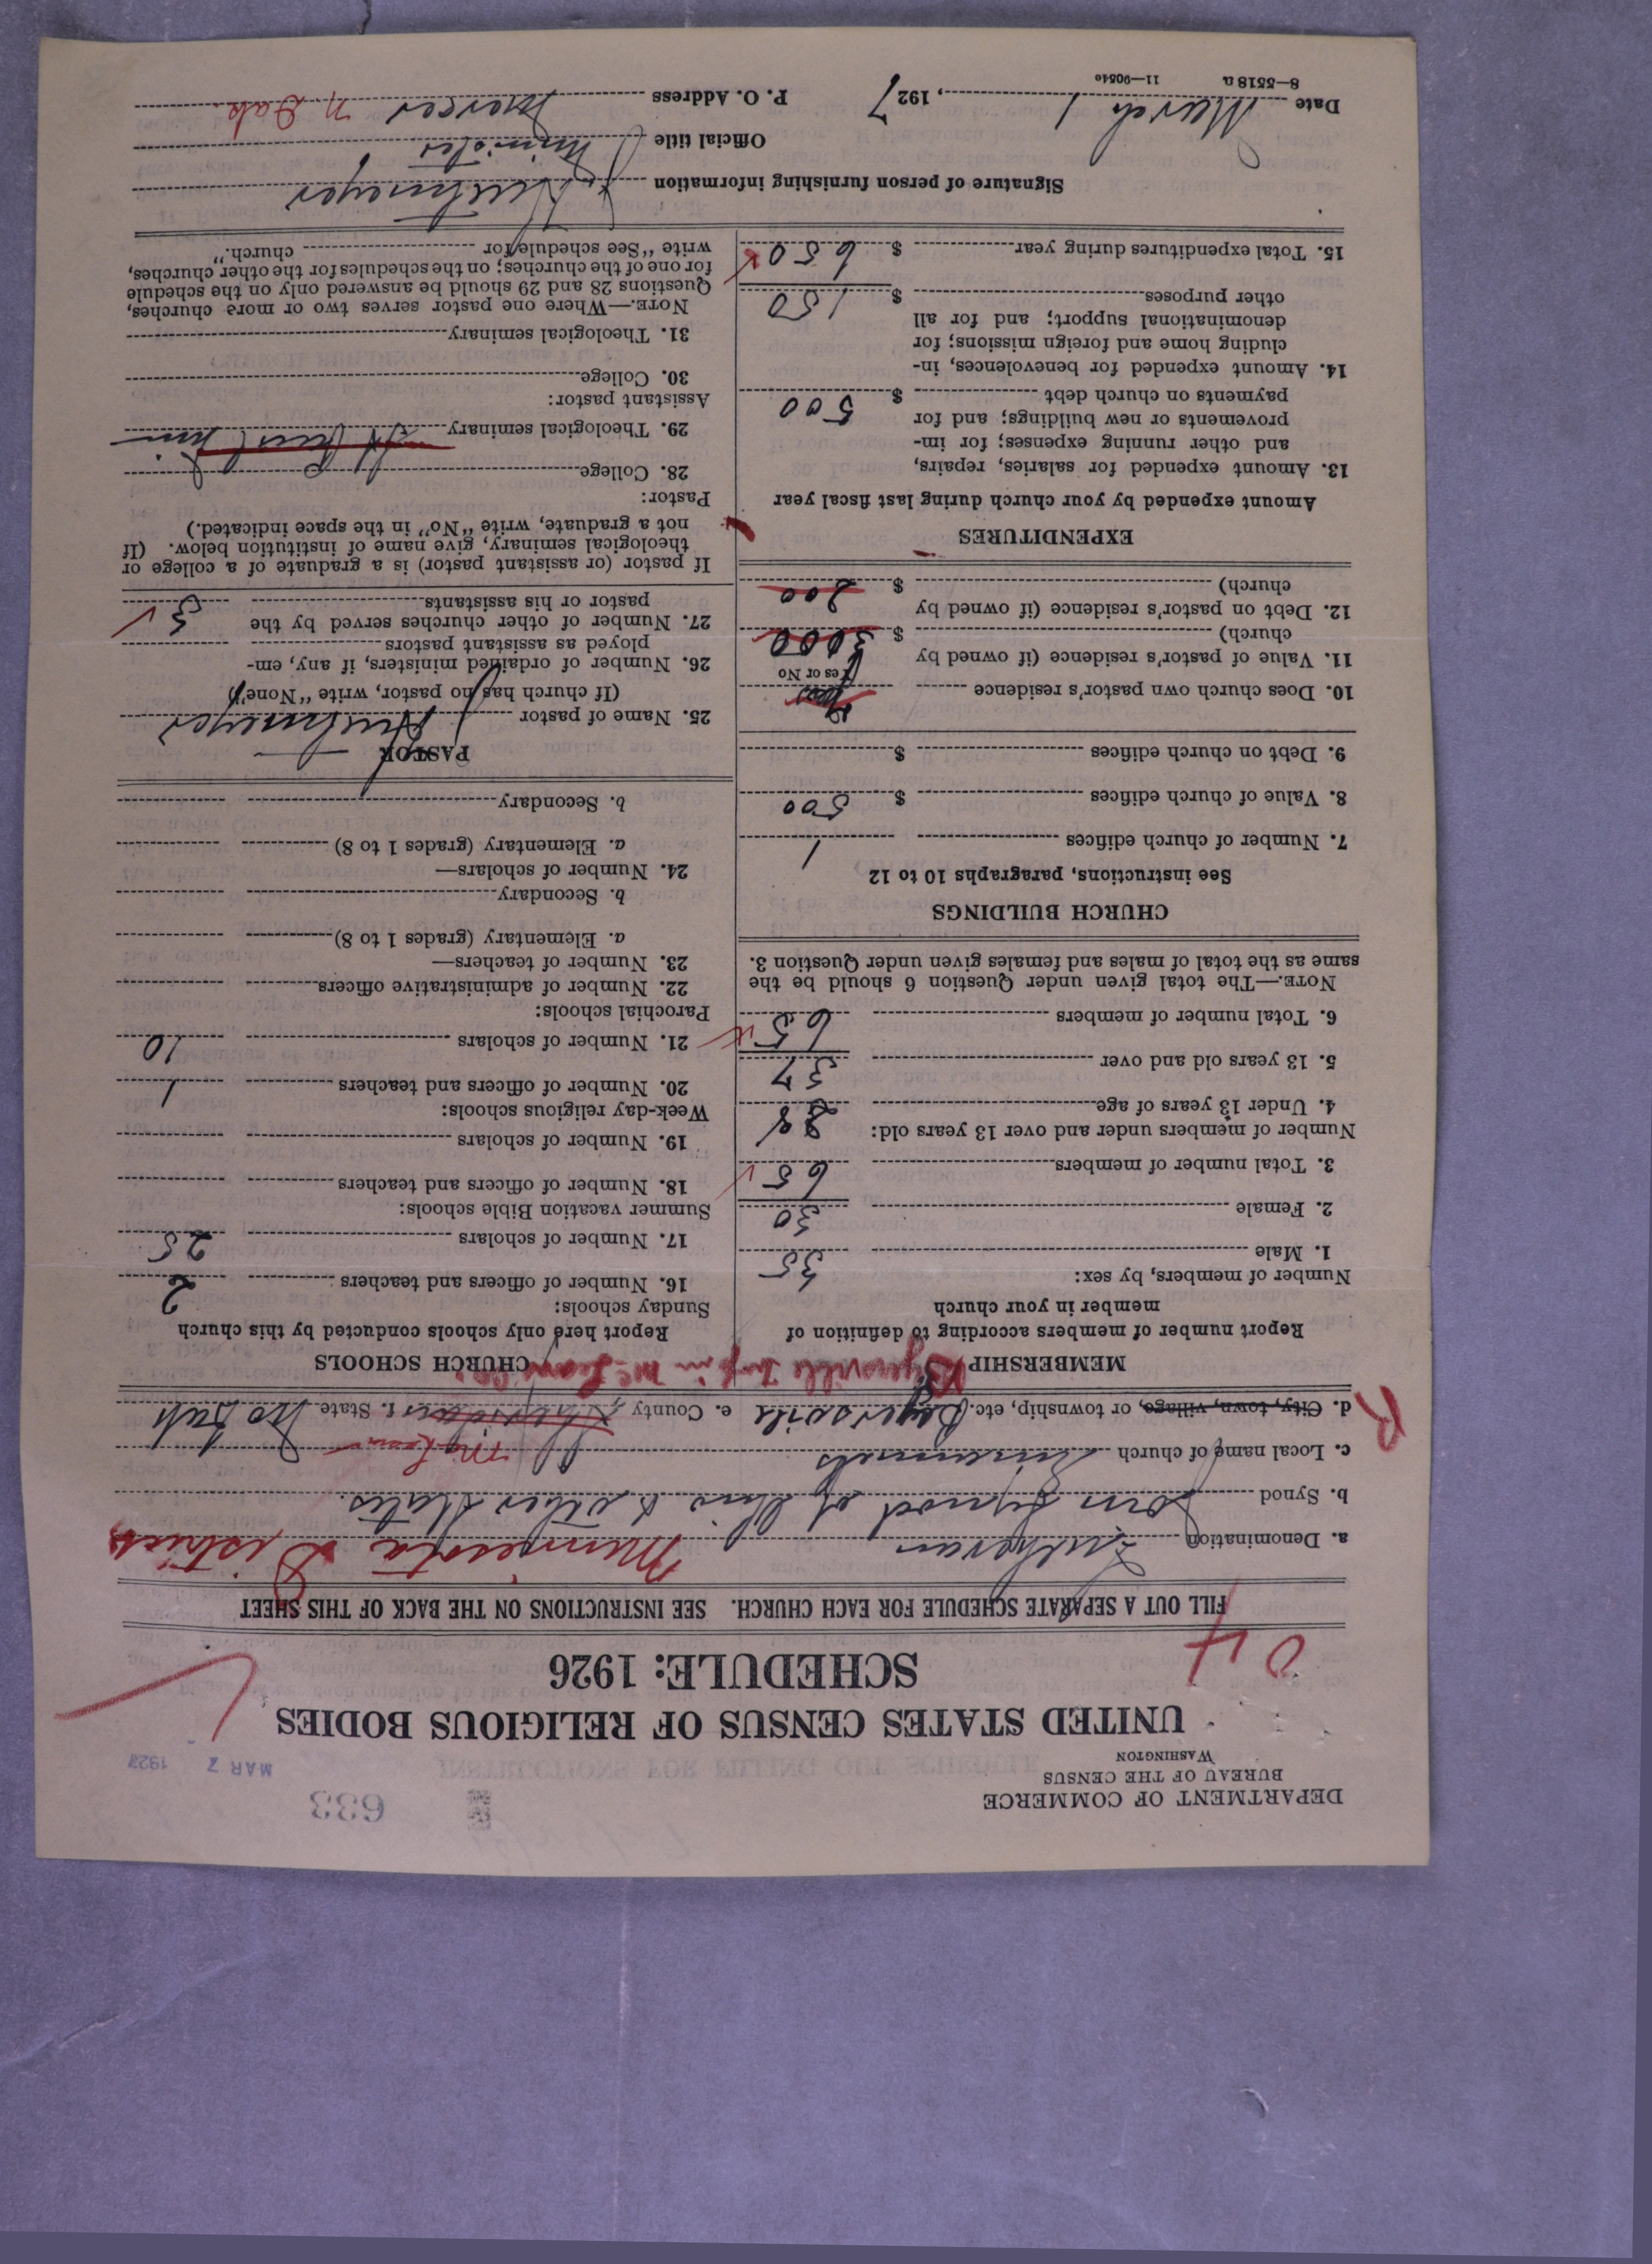 DEPARTMENT OF COMMERCE
BUREAU OF THE CENSUS
WASHINGTON
633
MAR 7 1927
UNITED STATES CENSUS OF RELIGIOUS BODIES
SCHEDULE: 1926
04
FILL OUT A SEPARATE SCHEDULE FOR EACH CHURCH. SEE INSTRUCTIONS ON THE BACK OF THIS SHEET
a. Denomination Lutheran Minnesota District
b. Synod Joint Synod of Ohio & other States.
c. Local name of church
d. City, town, village, or township, etc. e. County McLean f. State No Dak
R
MEMBERSHIP
Report number of members according to definition of
member in your church
Number of members, by sex:
1. Male 35
2. Female 30
3. Total number of members 65
Number of members under and over 13 years old:
4. Under 13 years of age 28
5. 13 years old and over 37
6. Total number of members 65
NOTE.—The total given under Question 6 should be the
same as the total of males and females given under Question 3.
CHURCH BUILDINGS
See instructions, paragraphs 10 to 12
7. Number of church edifices 1
8. Value of church edifices $ 500
9. Debt on church edifices $
10. Does church own pastor's residence
Yes or No
11. Value of pastor's residence (if owned by
church) $ 3000
12. Debt on pastor's residence (if owned by
church) $ 200
EXPENDITURES
Amount expended by your church during last fiscal year
13. Amount expended for salaries, repairs,
and other running expenses; for im-
provements or new buildings; and for
payments on church debt $ 500
14. Amount expended for benevolences, in-
cluding home and foreign missions; for
denominational support; and for all
other purposes $ 150
15. Total expenditures during year $ 650
CHURCH SCHOOLS
Report here only schools conducted by this church
Sunday schools:
16. Number of officers and teachers 2
17. Number of scholars 25
Summer vacation Bible schools:
18. Number of officers and teachers
19. Number of scholars
Week-day religious schools:
20. Number of officers and teachers 1
21. Number of scholars 10
Parochial schools:
22. Number of administrative officers
23. Number of teachers—
a. Elementary (grades 1 to 8)
b. Secondary
24. Number of scholars—
a. Elementary (grades 1 to 8)
b. Secondary
PASTOR
25. Name of pastor
(If church has no pastor, write "None")
26. Number of ordained ministers, if any, em-
ployed as assistant pastors
27. Number of other churches served by the
pastor or his assistants 3
If pastor (or assistant pastor) is a graduate of a college or
theological seminary, give name of institution below. (If
not a graduate, write "No" in the space indicated.)
Pastor:
28. College
29. Theological seminary St Paul Minn
Assistant pastor:
30. College
31. Theological seminary
NOTE.—Where one pastor serves two or more churches,
Questions 28 and 29 should be answered only on the schedule
for one of the churches; on the schedules for the other churches,
write "See schedule for church."
Signature of person furnishing information
Official title Minister
Date March 1, 1927 P. O. Address Mercer N. Dak.
8—5518 a 11—9054